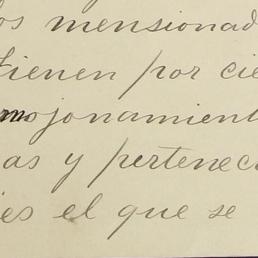 os mensionad
tienen por cie
mojonamient
as y pertenec
es el que se